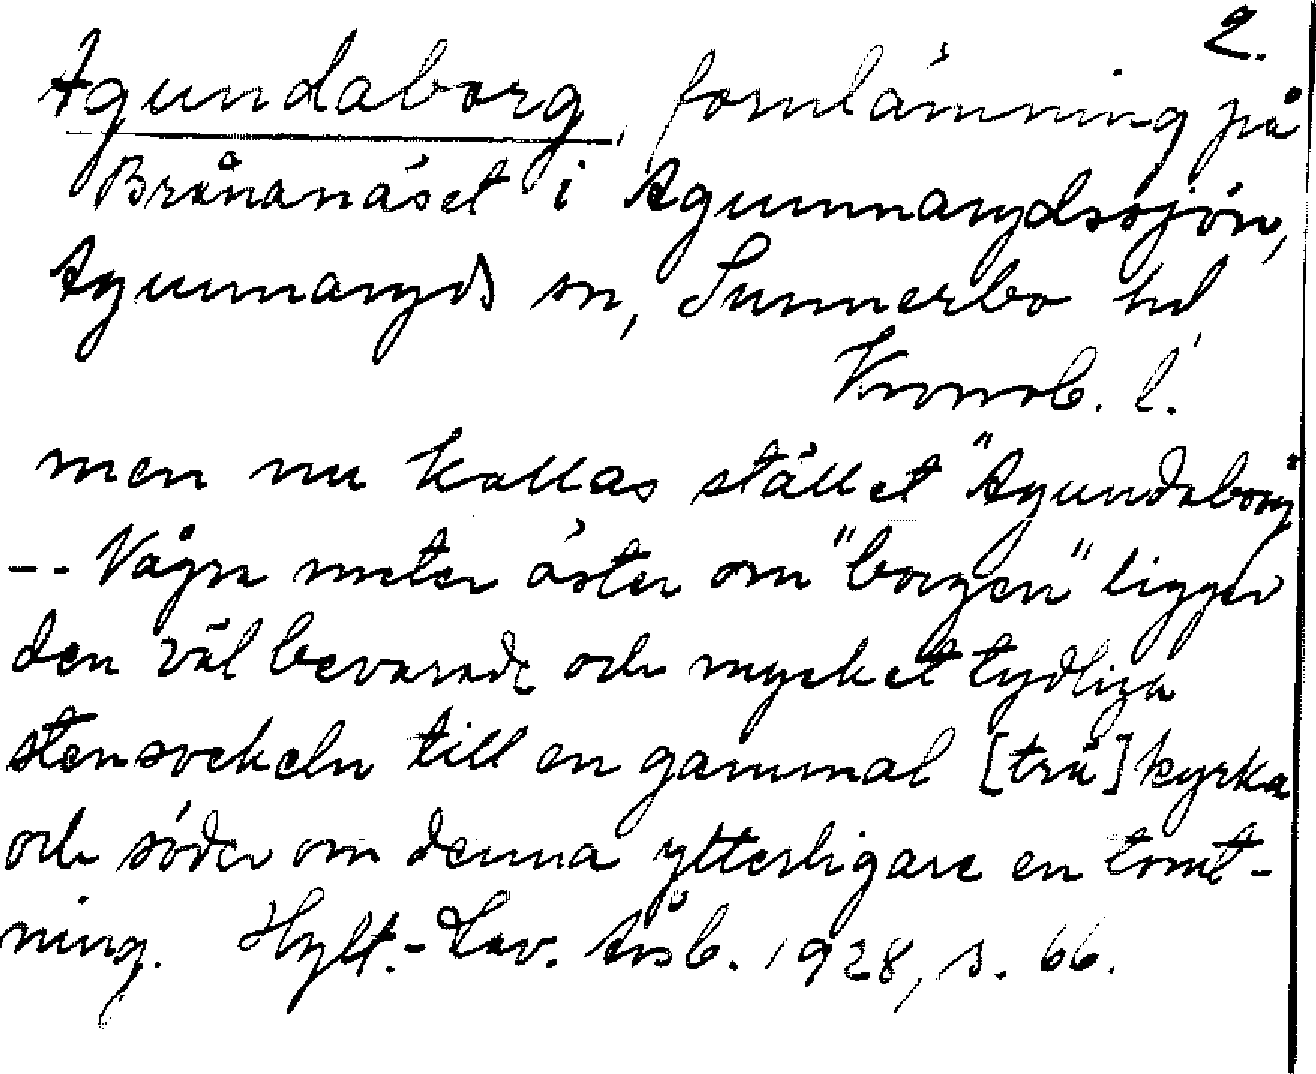 2.
Agundaborg, fornlämning på
Brånanäset i Agunnarydssjön,
Agunnaryds sn, Sunnerbo hd,
Kronob. l.
men nu kallas stället "Agundaborg"
-- Några meter öster om "borgen" ligger
den väl bevarade och mycket tydliga
stensockeln till en gammal [trä]kyrka
och söder om denna ytterligare en tomt-
ning. Hylt.-Cav. Årsb. 1928, s. 66.